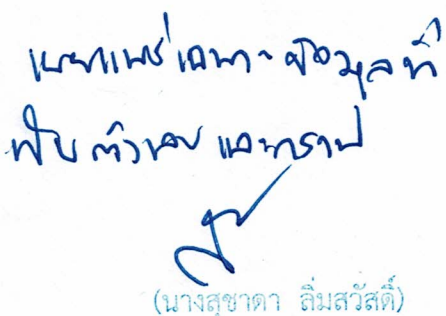 เผยแพร่เฉพาะข้อมูลที่
เป็นตัวเลข และกราฟ
(นางสุชาดา ลิ่มสวัสดิ์)